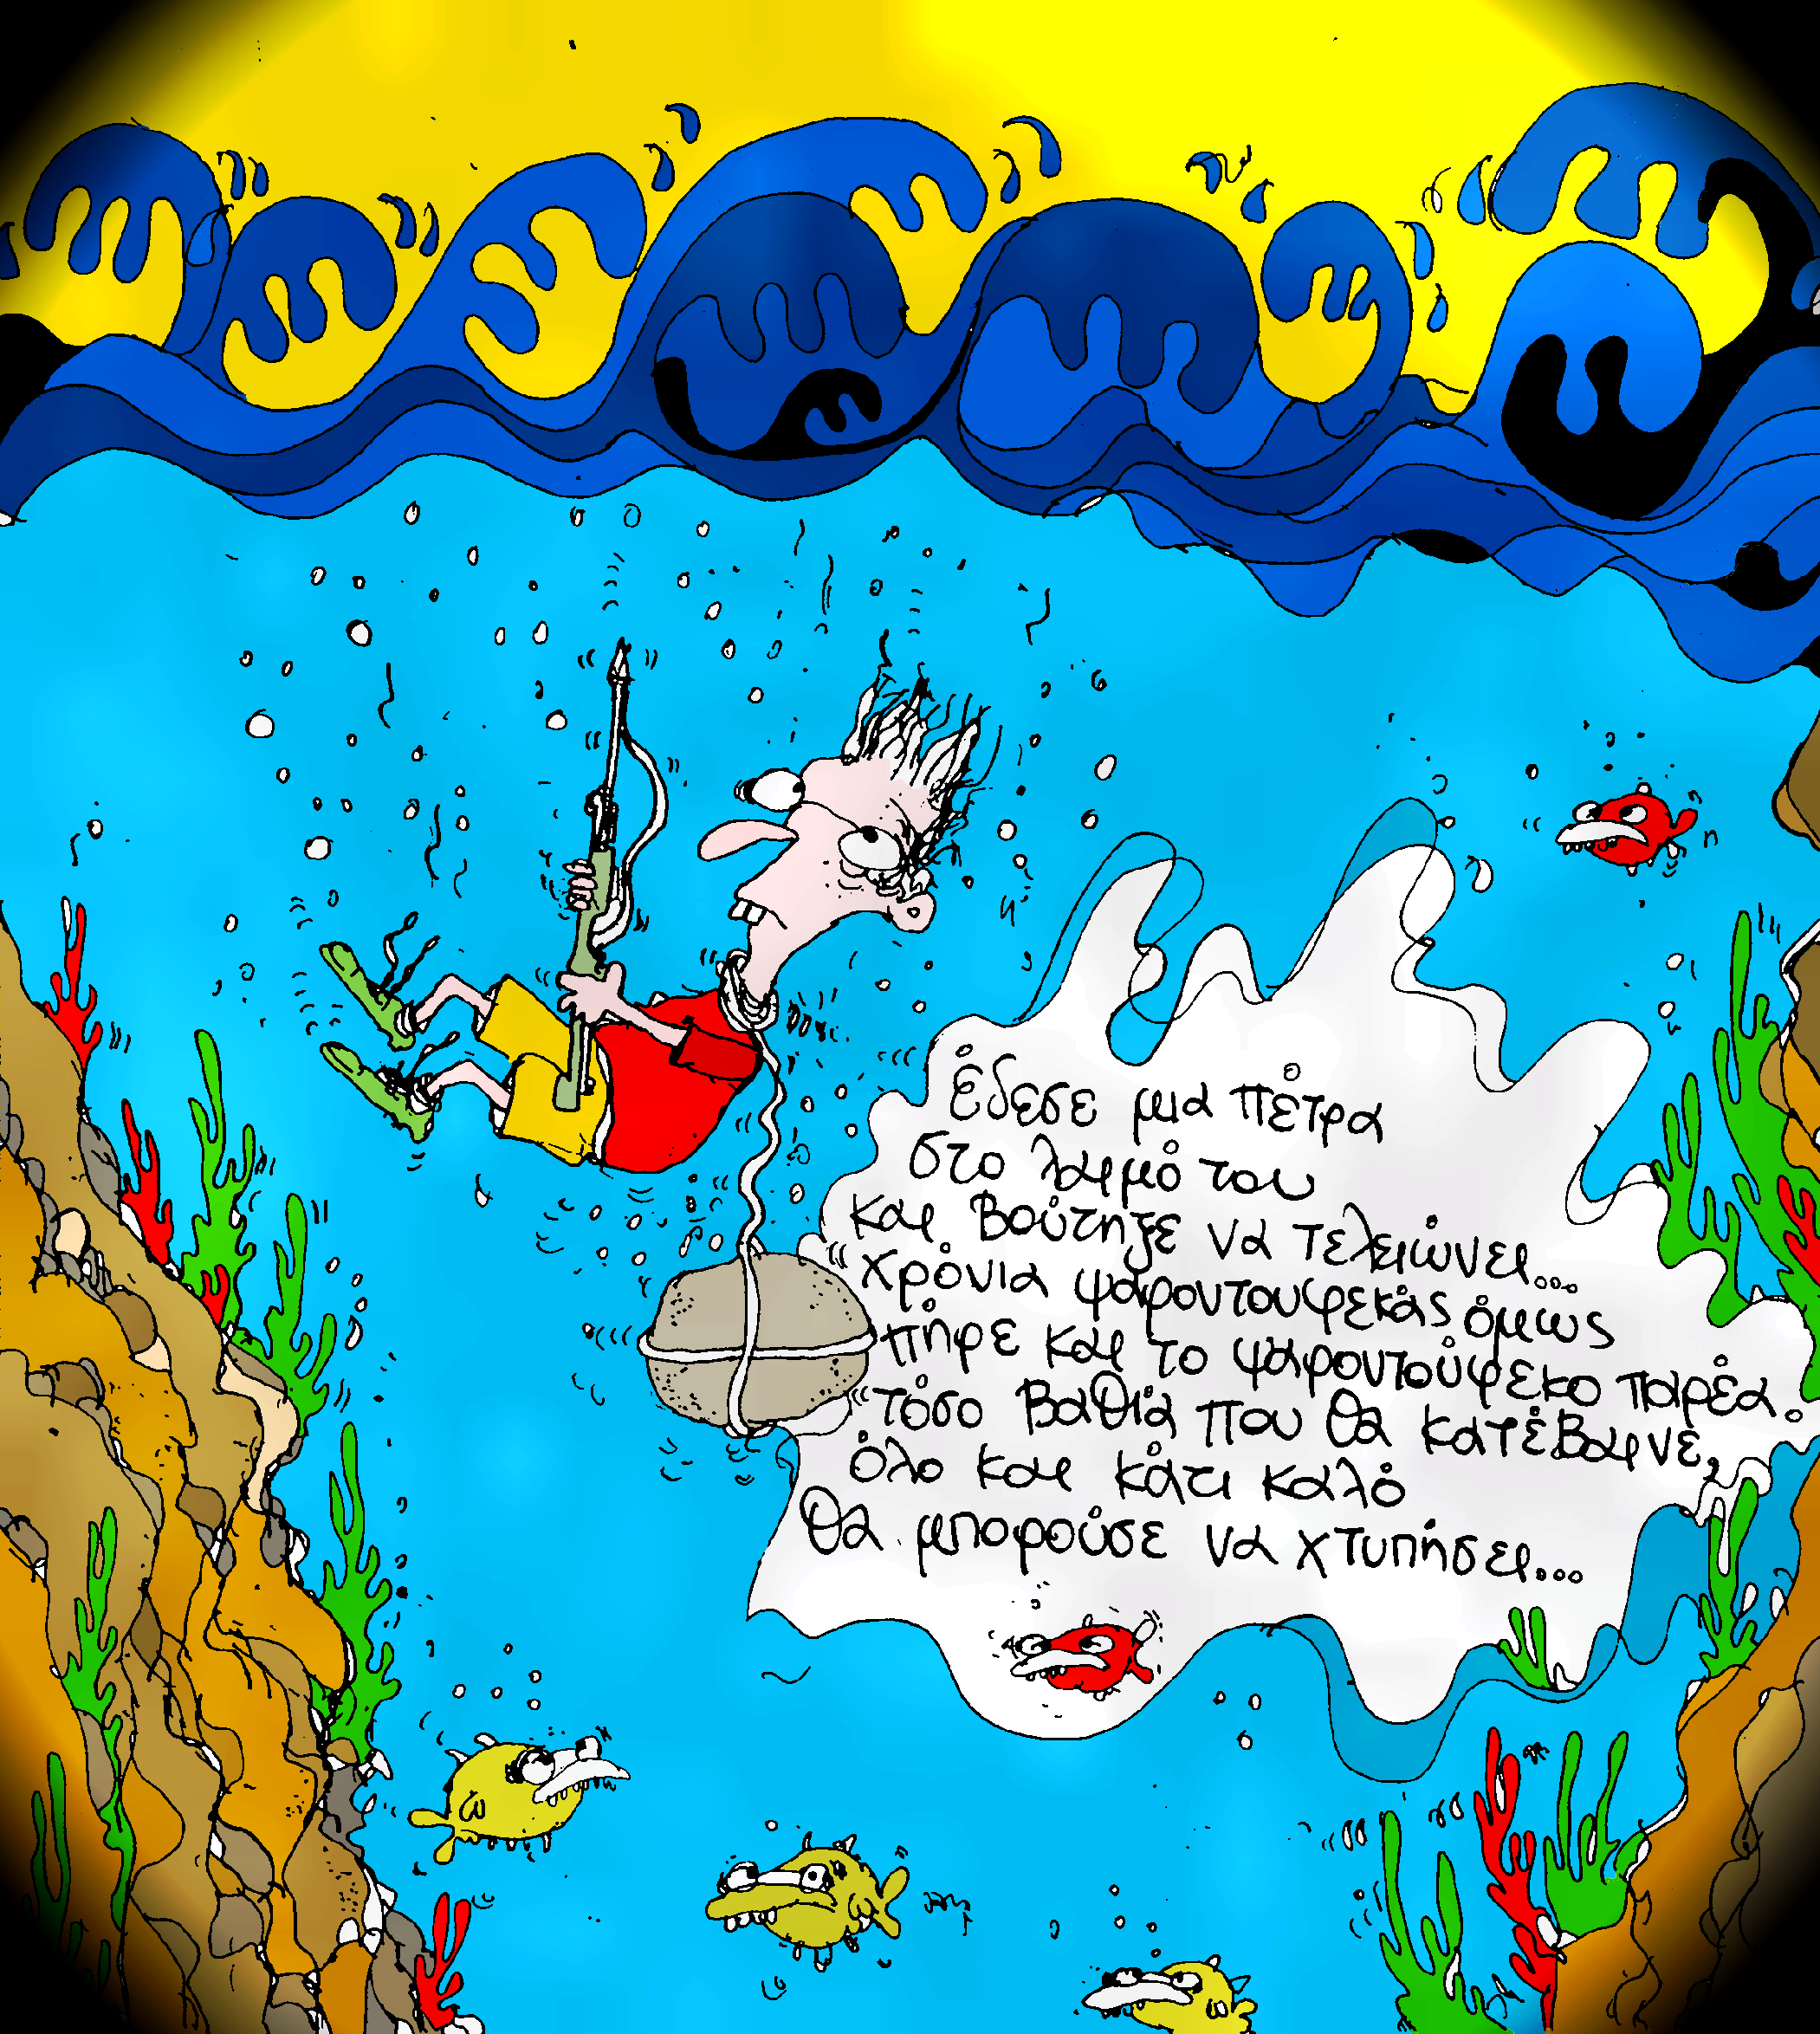 έδεσε μια πέτρα
στο λαιμό του
και βούτηξε να τελειώνει...
χρόνια ψαροντουφεκάς όμως
πήρε και το ψαροντούφεκο παρέα.
τόσο βαθιά που θα κατέβαινε,
όλο και κάτι καλό
θα μπορούσε να χτυπήσει...